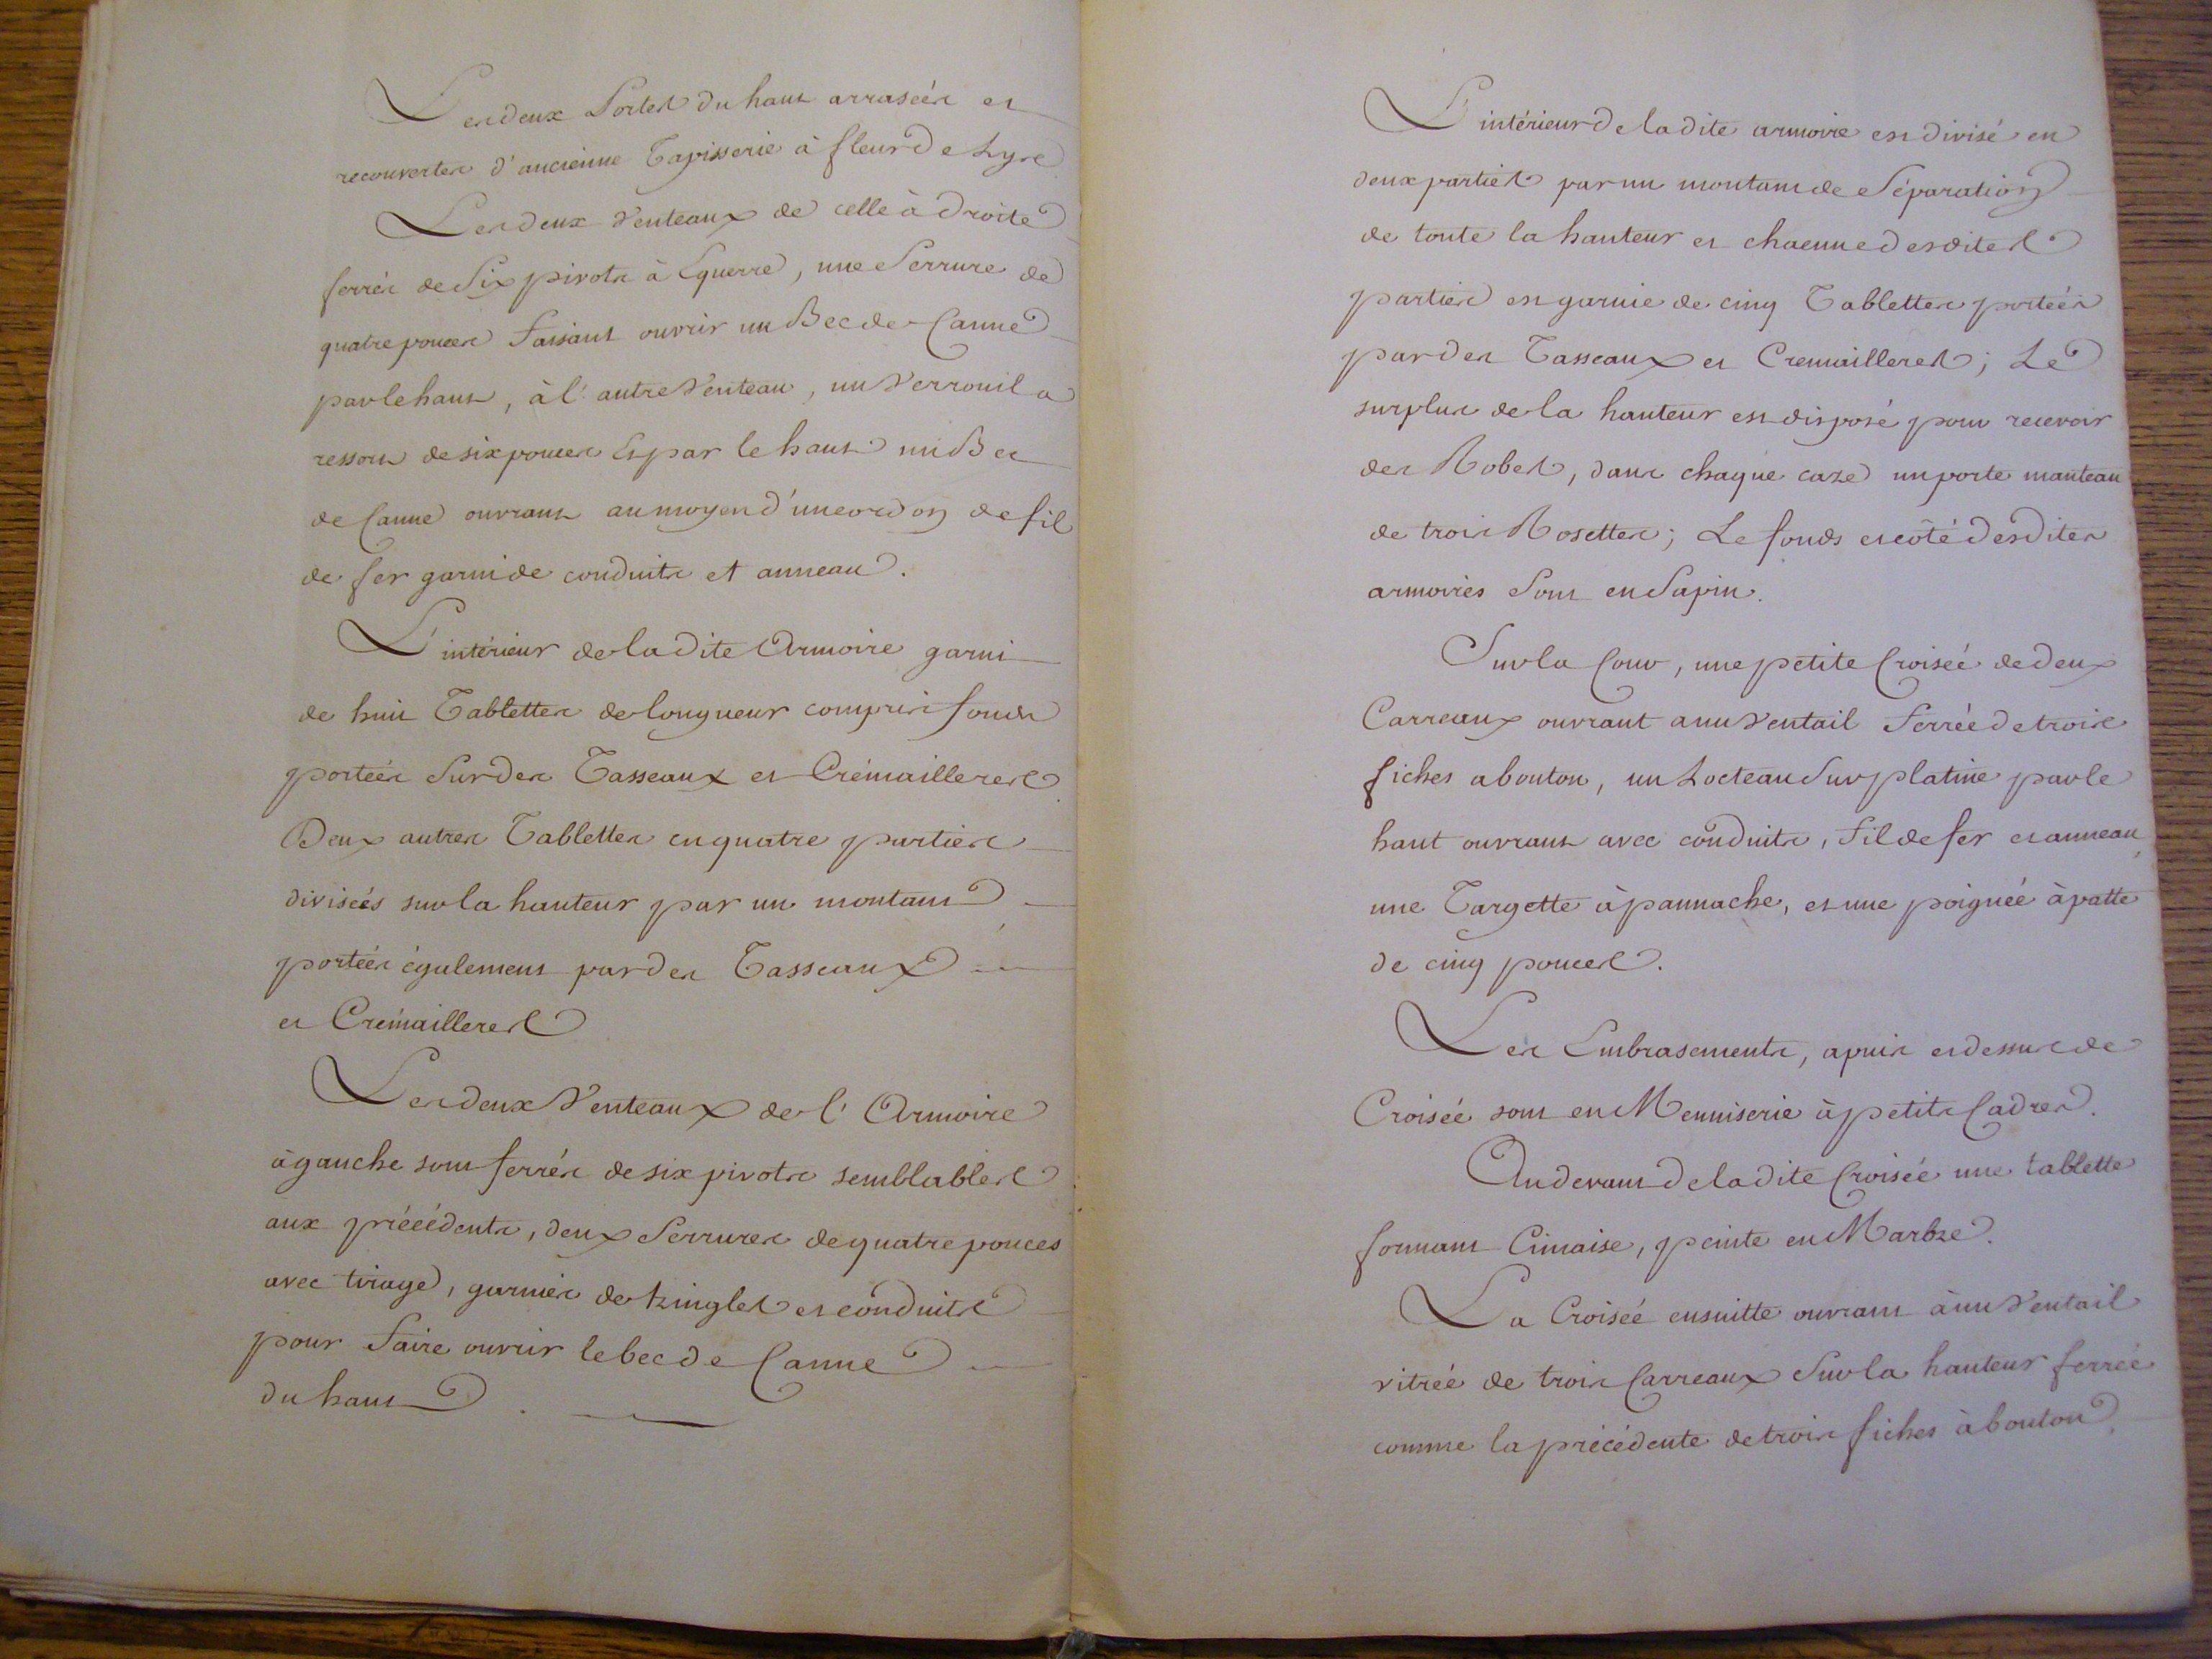 Les deux Portes du haut arrasées et
recouvertes d'ancienne Tapisserie à fleur de Lyse
Les deux Venteaux de celle à droite
ferrés de Six pivots à Equerre, une Serrure de
quatre pouces faisant ouvrir un Bec de Canne
par le haut, à l'autre Venteau, un Verrouil a
ressort de six pouces Et par le haut un Bec
de Canne ouvrant au moyen d'un cordon de fil
de fer garni de conduits et anneau.
L'intérieur de la dite Armoire garni
de huit Tablettes de longueur compris fonds
portées Sur des Tasseaux et Crémailleres
Deux autres Tablettes en quatre parties
divisées sur la hauteur par un montant
portées également par des Tasseaux
et Crémailleres
Les deux Venteaux de l'Armoire
à gauche sont ferrés de six pivots semblables
aux précédents, deux Serrures de quatre pouces
avec tirage, garnies de tringles et conduits
pour faire ouvrir le bec de Canne
du haut.
L'intérieur de la dite armoire est divisé en
deux parties par un montant de Séparation
de toute la hauteur et chacune desdites
parties est garnie de cinq Tablettes portées
par des Tasseaux et Cremailleres; Le
surplus de la hauteur est disposé pour recevoir
des Robes, dans chaque caze un porte manteau
de trois Rosettes; Le fonds et côté desdites
armoires Sont en Sapin.
Sur la Cour, une petite Croisée de deux
Carreaux ouvrant a un Ventail ferrée de trois
fiches a bouton, un Locteau Sur platine par le
haut ouvrant avec conduits, fil de fer et anneau
une Targette à pannache, et une poignée à patte
de cinq pouces.
Les Embrasements, apuis et dessus de
Croisée sont en Menuiserie à petits Cadres.
Au devant de la dite Croisée une tablette
formant Cimaise, peinte en Marbre.
La Croisée ensuitte ouvrant à un Ventail
vitrée de trois Carreaux Sur la hauteur ferrée
comme la précédente de trois fiches à bouton